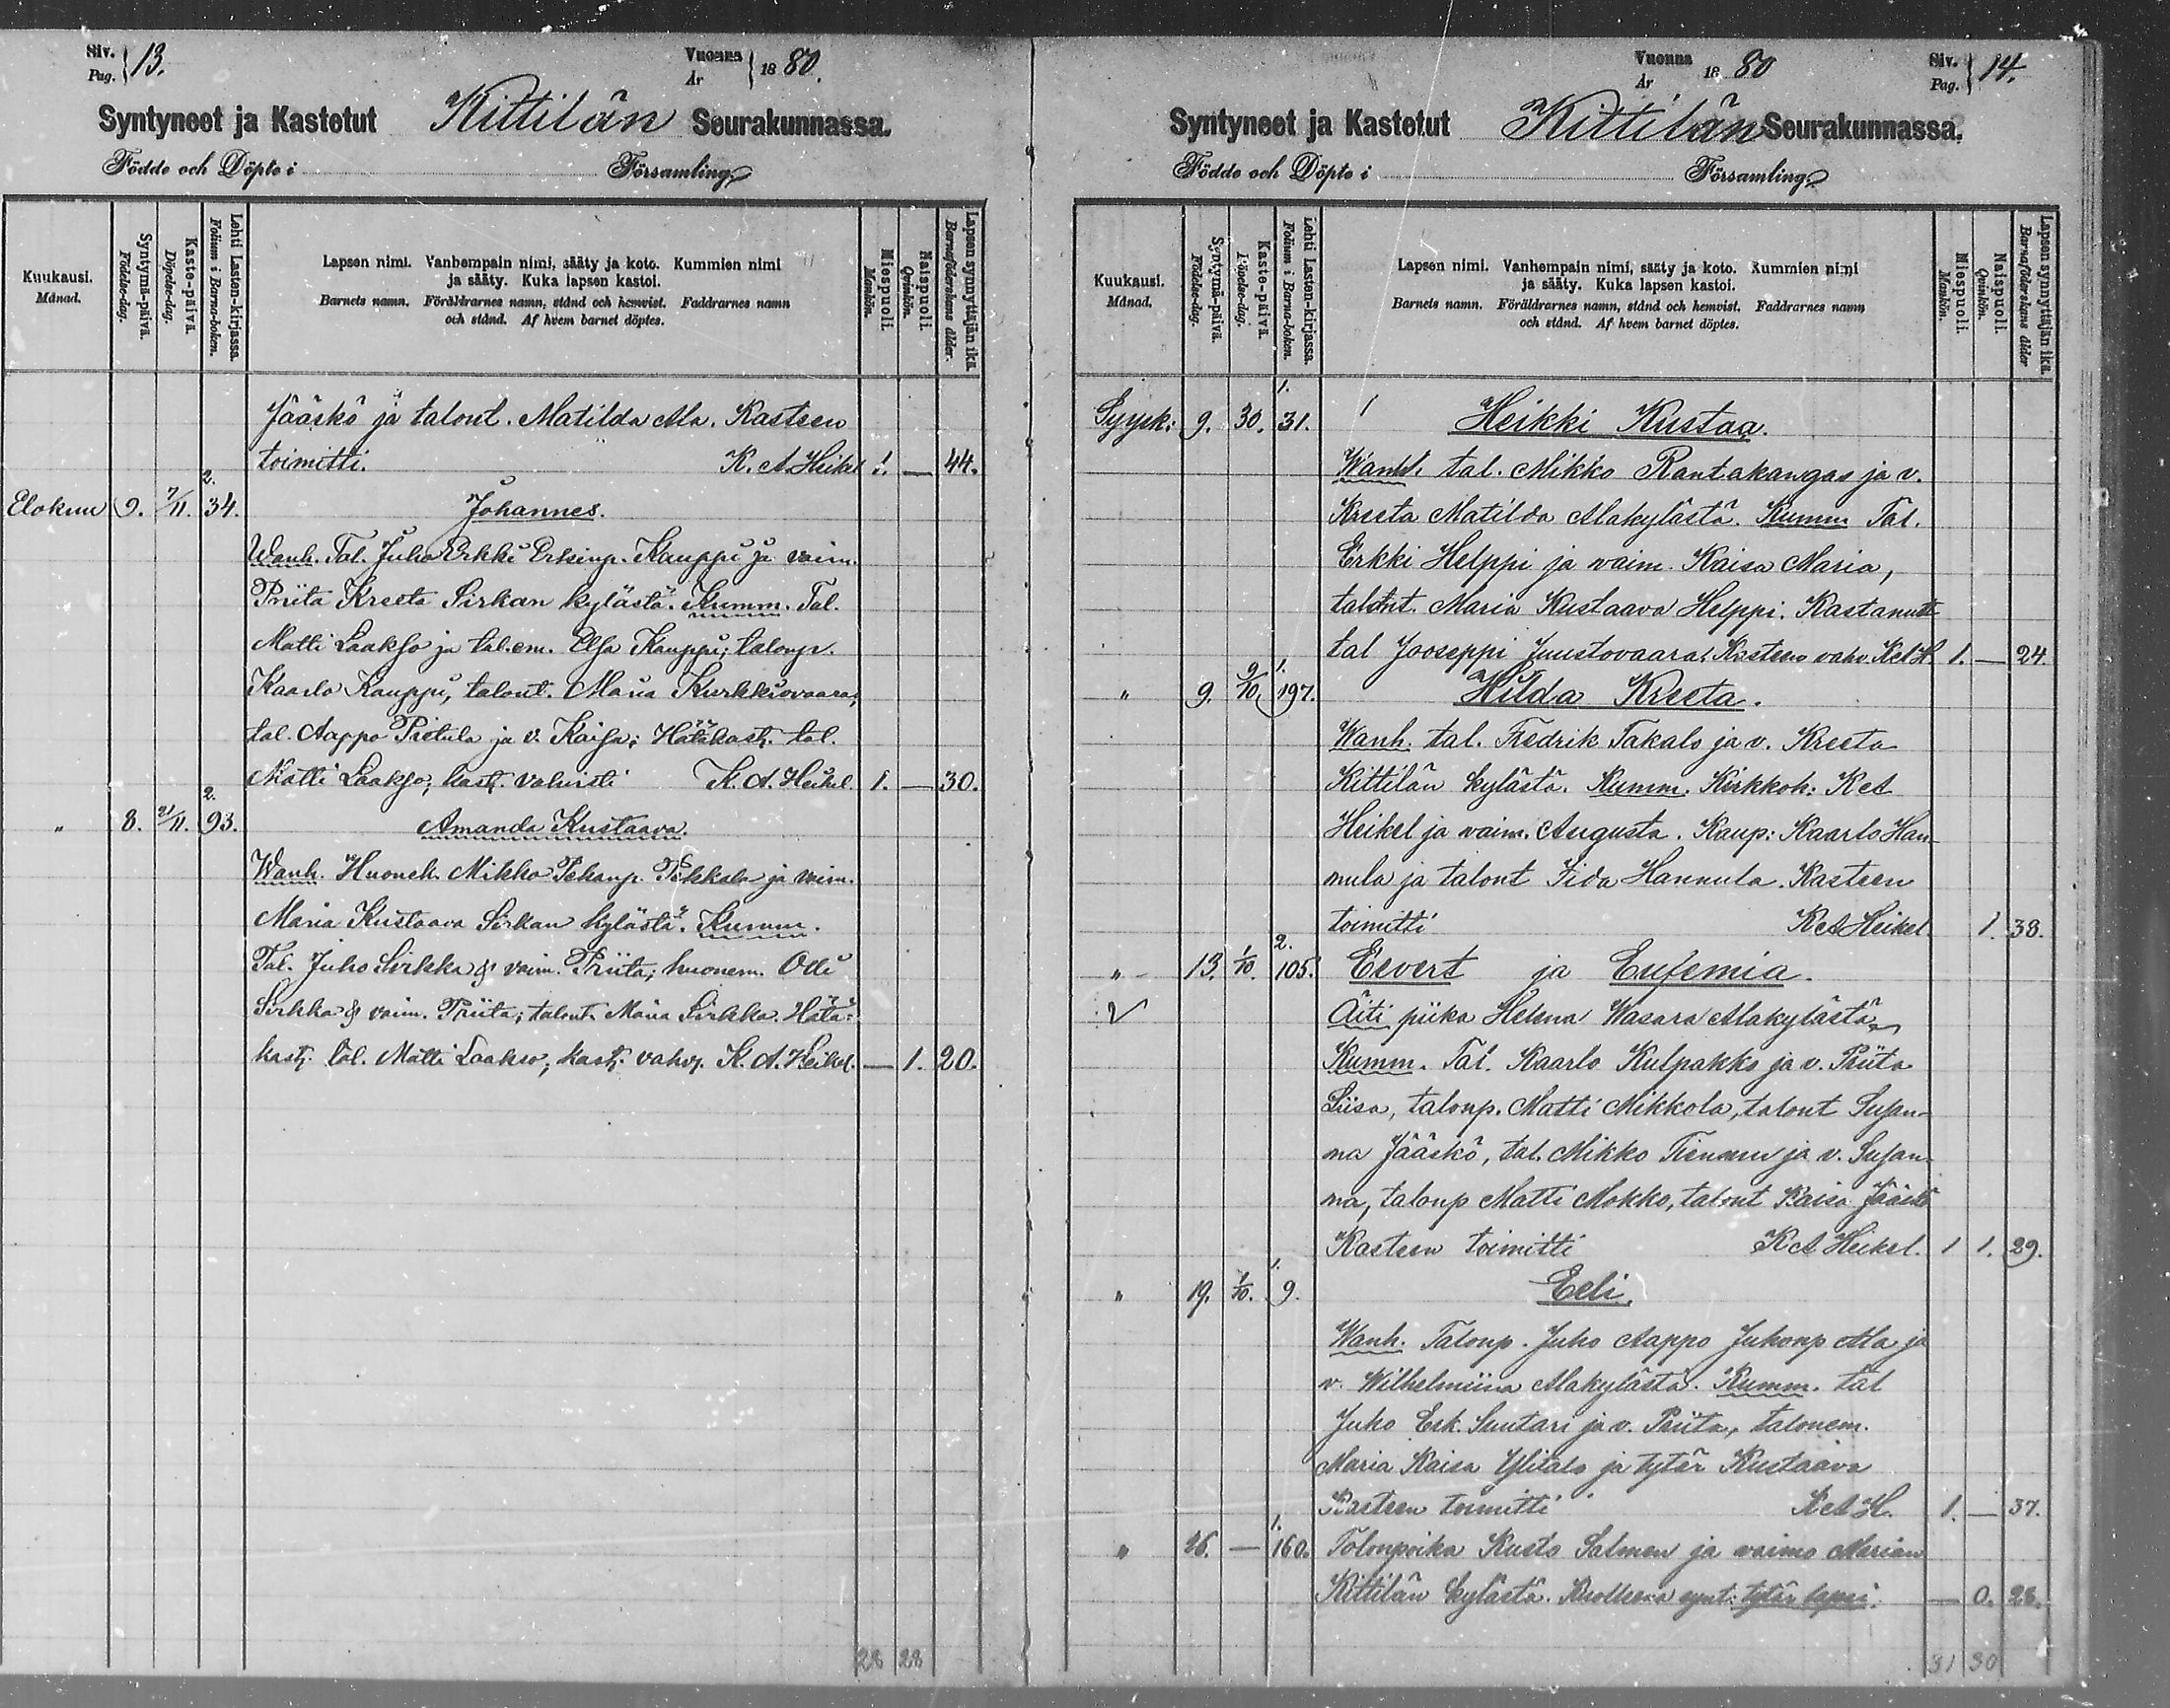 Siv.
Pag. } 13.
Vuonna
År } 18 80.
Syntyneet ja Kastetut Kittilän Seurakunnassa.
Födde och Döpte i Församling.
Kuukausi.
Månad.
Syntymä-päivä.
Födelse-dag.
Kaste-päivä.
Döpelse-dag.
Lehti Lasten-kirjassa.
Folium i Barna-boken.
Lapsen nimi. Vanhempain nimi, sääty ja koto. Kummien nimi
ja sääty. Kuka lapsen kastoi.
Barnets namn. Föräldrarnes namn, stånd och hemvist. Faddrarnes namn
och stånd. Af hvem barnet döptes.
Miespuoli.
Mankön.
Naispuoli.
Qvinkön.
Lapsen synnyttäjän ikä.
Barnaföderskans ålder.
Jääskö ja talont. Matilda Ala. Kasteen
toimitti. K. A. Heikel 1. — 44.
Elokuu 9. 7/11. 2. 34. Johannes.
Wanh. Tal. Juho Erkki Erkinp. Kauppi ja vaim.
Priita Kreeta Sirkan kylästä. Kumm. Tal.
Matti Laakso ja tal.em. Elsa Kauppi; talonp.
Kaarlo Kauppi, talont. Maria Kurkkiovaara;
tal. Aappo Pietula ja v. Kaisa; Hätäkast. tal.
Matti Laakso; kast. vahvisti K. A. Heikel. 1. — 30.
" 8. 21/11. 2. 93. Amanda Kustaava.
Wanh. Huoneh. Mikko Pekanp. Pekkala ja vaim.
Maria Kustaava Sirkan kylästä. Kumm.
Tal. Juho Sirkka & vaim. Priita; huonem. Olli
Sirkka & vaim. Priita; talont. Maria Sirkka. Hätä:
kast. tal. Matti Laakso; kast. vahv. K. A. Heikel. — 1. 20.
28 28
Vuonna
År 18 80
Siv.
Pag. } 14.
Syntyneet ja Kastetut Kittilän Seurakunnassa.
Födde och Döpte i Församling.
Kuukausi.
Månad.
Syntymä-päivä.
Födelse-dag.
Kaste-päivä.
Döpelse-dag.
Lehti Lasten-kirjassa.
Folium i Barna-boken.
Lapsen nimi. Vanhempain nimi, sääty ja koto. Kummien nimi
ja sääty. Kuka lapsen kastoi.
Barnets namn. Föräldrarnes namn, stånd och hemvist. Faddrarnes namn
och stånd. Af hvem barnet döptes.
Miespuoli.
Mankön.
Naispuoli.
Qvinkön.
Lapsen synnyttäjän ikä.
Barnaföderskans ålder
Syysk: 9. 30. 1. 31. Heikki Kustaa.
Wanh. tal. Mikko Rantakangas ja v.
Kreeta Matilda Alakylästä. Kumm Tal.
Erkki Helppi ja vaim. Kaisa Maria,
talont. Maria Kustaava Helppi. Kastanut
tal Jooseppi Juustovaara. Kasteen vahv. KAH 1. — 24.
" 9. 9/10. 1. 197. Hilda Kreeta.
Wanh. tal. Fredrik Takalo ja v. Kreeta
Kittilän kylästä. Kumm. Kirkkoh: K A
Heikel ja vaim. Augusta. Kaup: Kaarlo Han-
nula ja talont Iida Hannula. Kasteen
toimitti K A Heikel 1. 38.
" 13. 1/10. 2. 105. Eevert ja Eufemia.
Äiti piika Helena Wasara Alakylästä
Kumm. Tal. Kaarlo Kulpakko ja v. Priita
Liisa, talonp. Matti Mikkola, talont Susan-
na Jääskö, tal. Mikko Tiensuu ja v. Susan-
na, talonp Matti Mokko, talont Kaisa Jääskö
Kasteen toimitti K A Heikel. 1 1. 29.
" 19. 1/10. 1. 9. Eeli.
Wanh. Talonp. Juho Aappo Juhonp Ala ja
v. Wilhelmiina Alakylästä. Kumm. tal
Juho Erk. Suutari ja v. Priita, talonem.
Maria Kaisa Ylitalo ja tytär Kustaava
Kasteen toimitti K A H. 1. — 37.
" 26. — 1. 160. Talonpoika Kusto Salmen ja vaimo Marian
Kittilän kylästä. Kuolleena synt: tytär lapsi. — 0. 28.
31 30